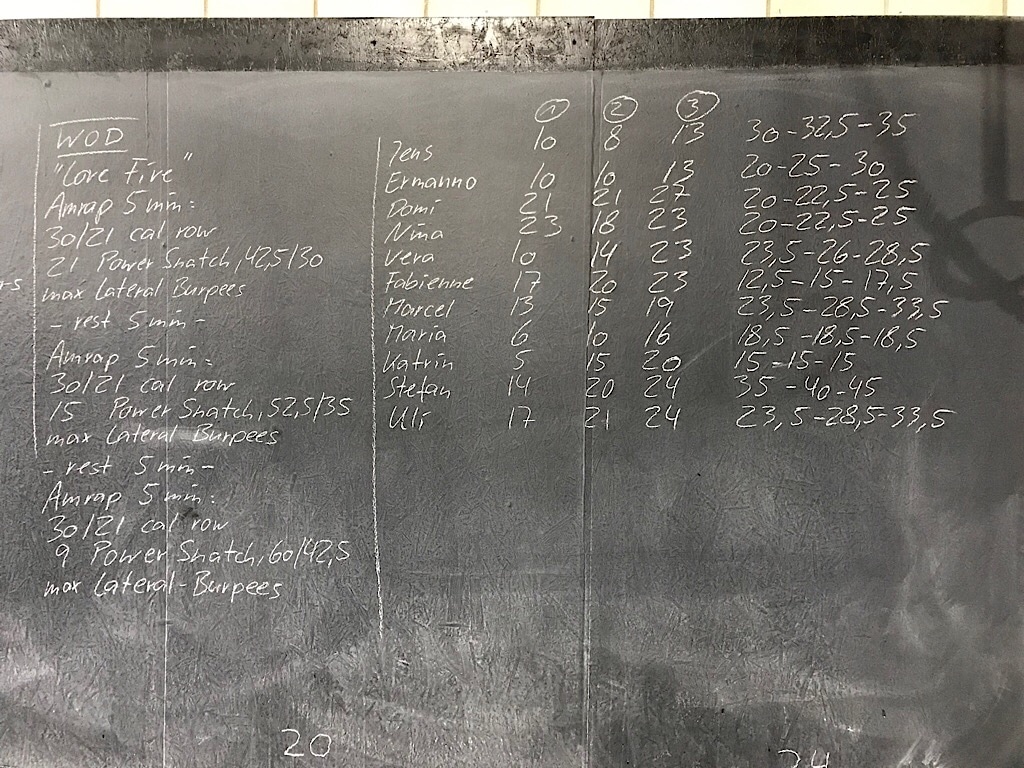 WOD
"Core Fire"
Amrap 5 min:
30/21 cal row
21 Power Snatch, 42,5/30
max Lateral Burpees
- rest 5 min -
Amrap 5 min:
30/21 cal row
15 Power Snatch, 52,5/35
max Lateral Burpees
- rest 5 min -
Amrap 5 min:
30/21 cal row
9 Power Snatch, 60/42,5
max Lateral-Burpees
1 2 3
Jens 10 8 13 30-32,5-35
Ermanno 10 10 13 20-25-30
Domi 21 21 27 20-22,5-25
Nina 23 18 23 20-22,5-25
Vera 10 14 23 23,5-26-28,5
Fabienne 17 20 23 12,5-15-17,5
Marcel 13 15 19 23,5-28,5-33,5
Maria 6 10 16 18,5-18,5-18,5
Katrin 5 15 20 15-15-15
Stefan 14 20 24 35-40-45
Uli 17 21 24 23,5-28,5-33,5
20